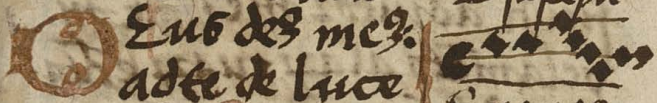 Deus deꝰ meꝰ.
ad te de luce